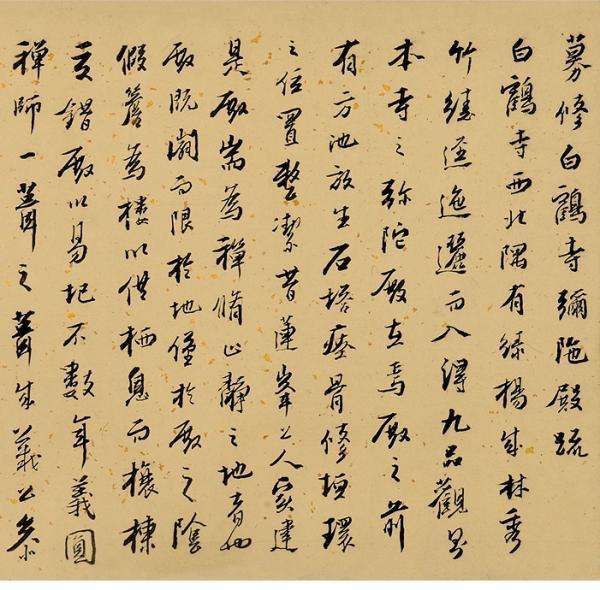 募修白鶴寺彌陁殿疏
白鶴寺西北隅有綠楊成林秀
竹縫逕迤邐而入得九品觀即
本寺之弥陀殿在焉殿之前
有方池放生石塔瘞骨修垣環
之位置整潔昔蓮峯上人實建
是殿耑為禪脩止靜之地青
殿既閎而限於地僅於殿之陰
假簷為樓以供栖息而榱棟
交錯殿以易圮不數年義圓
禪師一葺之葺成義公矣